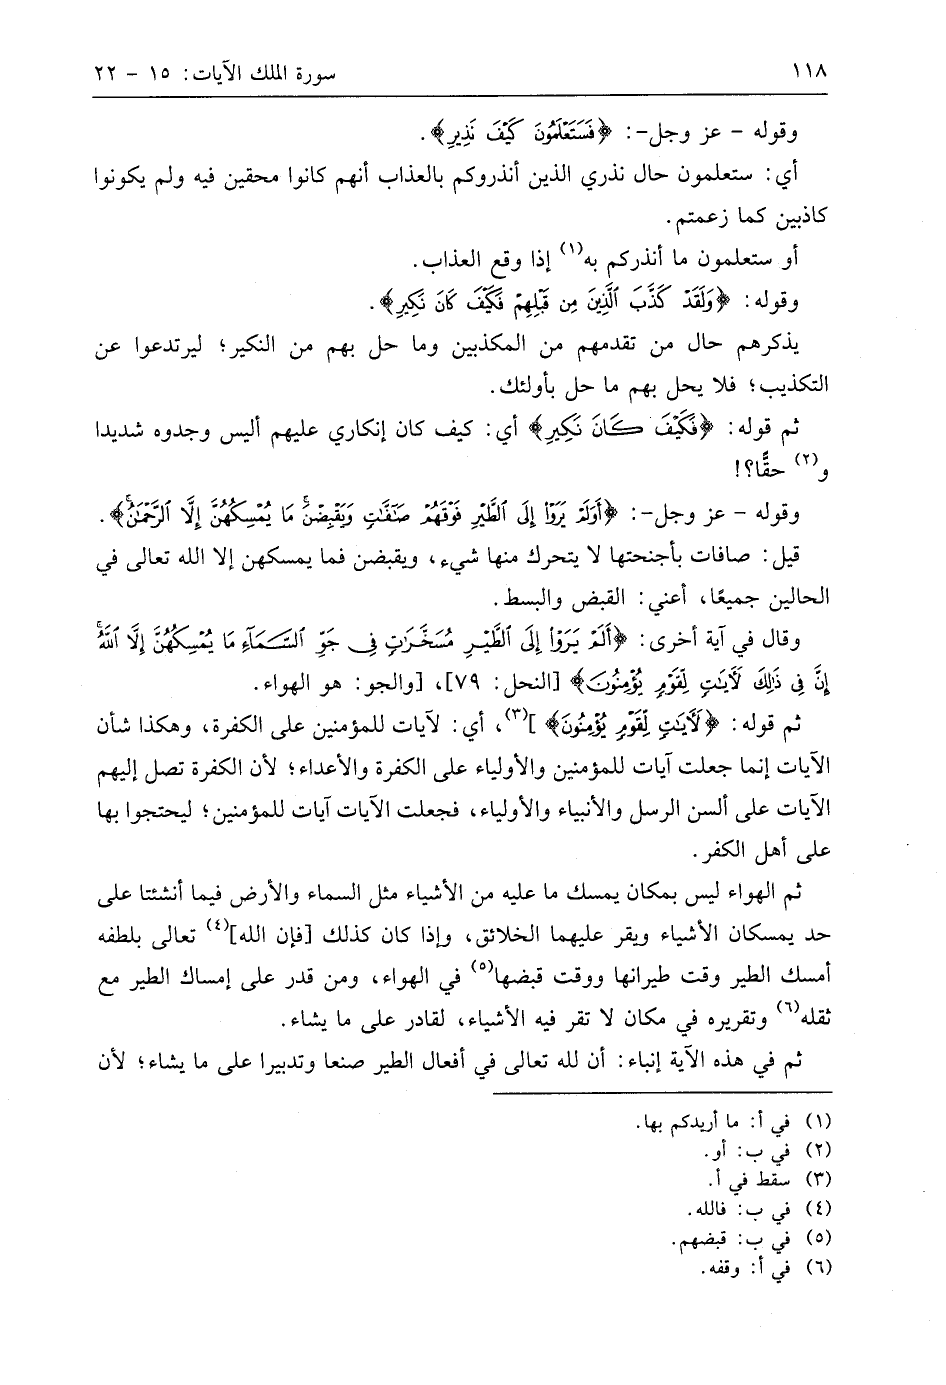 ١١٨ سورة الملك الآيات: ١٥ - ٢٢
وقوله - عز وجل-: ﴿فَسَتَعْلَمُونَ كَيْفَ نَذِيرِ﴾.
أي: ستعلمون حال نذري الذين أنذروكم بالعذاب أنهم كانوا محقين فيه ولم يكونوا
كاذبين كما زعمتم.
أو ستعلمون ما أنذركم به(١) إذا وقع العذاب.
وقوله: ﴿وَلَقَدْ كَذَّبَ ٱلَّذِينَ مِن قَبْلِهِمْ فَكَيْفَ كَانَ نَكِيرِ﴾.
يذكرهم حال من تقدمهم من المكذبين وما حل بهم من النكير؛ ليرتدعوا عن
التكذيب؛ فلا يحل بهم ما حل بأولئك.
ثم قوله: ﴿فَكَيْفَ كَانَ نَكِيرِ﴾ أي: كيف كان إنكاري عليهم أليس وجدوه شديدا
و(٢) حقًّا؟!
وقوله - عز وجل-: ﴿أَوَلَمْ يَرَوْا۟ إِلَى ٱلطَّيْرِ فَوْقَهُمْ صَٰٓفَّٰتٍ وَيَقْبِضْنَۚ مَا يُمْسِكُهُنَّ إِلَّا ٱلرَّحْمَٰنُۚ﴾.
قيل: صافات بأجنحتها لا يتحرك منها شيء، ويقبضن فما يمسكهن إلا الله تعالى في
الحالين جميعًا، أعني: القبض والبسط.
وقال في آية أخرى: ﴿أَلَمْ يَرَوْا۟ إِلَى ٱلطَّيْرِ مُسَخَّرَٰتٍ فِى جَوِّ ٱلسَّمَآءِ مَا يُمْسِكُهُنَّ إِلَّا ٱللَّهُۚ
إِنَّ فِى ذَٰلِكَ لَءَايَٰتٍ لِّقَوْمٍ يُؤْمِنُونَ﴾ [النحل: ٧٩]، [والجو: هو الهواء.
ثم قوله: ﴿لَءَايَٰتٍ لِّقَوْمٍ يُؤْمِنُونَ﴾ ](٣)، أي: لآيات للمؤمنين على الكفرة، وهكذا شأن
الآيات إنما جعلت آيات للمؤمنين والأولياء على الكفرة والأعداء؛ لأن الكفرة تصل إليهم
الآيات على ألسن الرسل والأنبياء والأولياء، فجعلت الآيات آيات للمؤمنين؛ ليحتجوا بها
على أهل الكفر.
ثم الهواء ليس بمكان يمسك ما عليه من الأشياء مثل السماء والأرض فيما أنشئتا على
حد يمسكان الأشياء ويقر عليهما الخلائق، وإذا كان كذلك [فإن الله](٤) تعالى بلطفه
أمسك الطير وقت طيرانها ووقت قبضها(٥) في الهواء، ومن قدر على إمساك الطير مع
ثقله(٦) وتقريره في مكان لا تقر فيه الأشياء، لقادر على ما يشاء.
ثم في هذه الآية إنباء: أن لله تعالى في أفعال الطير صنعا وتدبيرا على ما يشاء؛ لأن
(١) في أ: ما أريدكم بها.
(٢) في ب: أو.
(٣) سقط في أ.
(٤) في ب: فالله.
(٥) في ب: قبضهم.
(٦) في أ: وقفه.